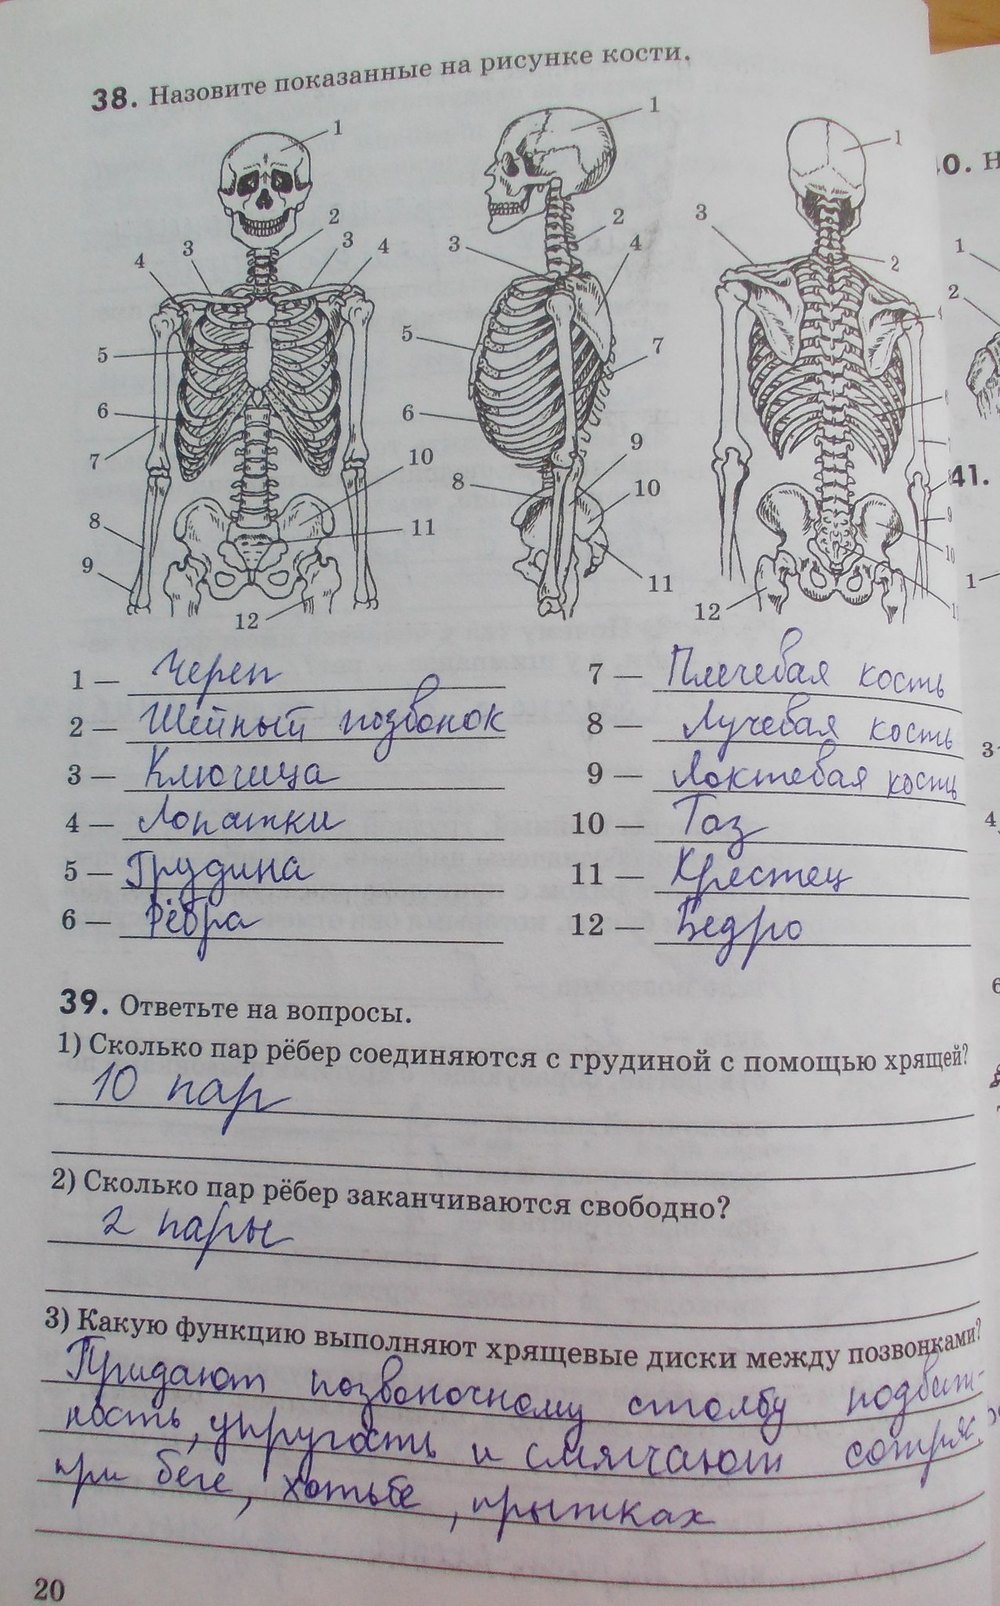 38. Назовите показанные на рисунке кости.
1
2
3
3
4
4
5
6
7
8
9
10
11
12
1
2
3
4
5
6
7
8
9
10
11
1
2
3
4
9
10
12
1 — Череп
2 — Шейный позвонок
3 — Ключица
4 — Лопатки
5 — Грудина
6 — Рёбра
7 — Плечевая кость
8 — Лучевая кость
9 — Локтевая кость
10 — Таз
11 — Крестец
12 — Бедро
39. Ответьте на вопросы.
1) Сколько пар рёбер соединяются с грудиной с помощью хрящей?
10 пар
2) Сколько пар рёбер заканчиваются свободно?
2 пары
3) Какую функцию выполняют хрящевые диски между позвонками?
Придают позвоночному столбу подвиж-
ность, упругость и смягчают сотряс.
при беге, хотьбе, прыжках
20
0. Н
1
2
41.
1
3
4
6